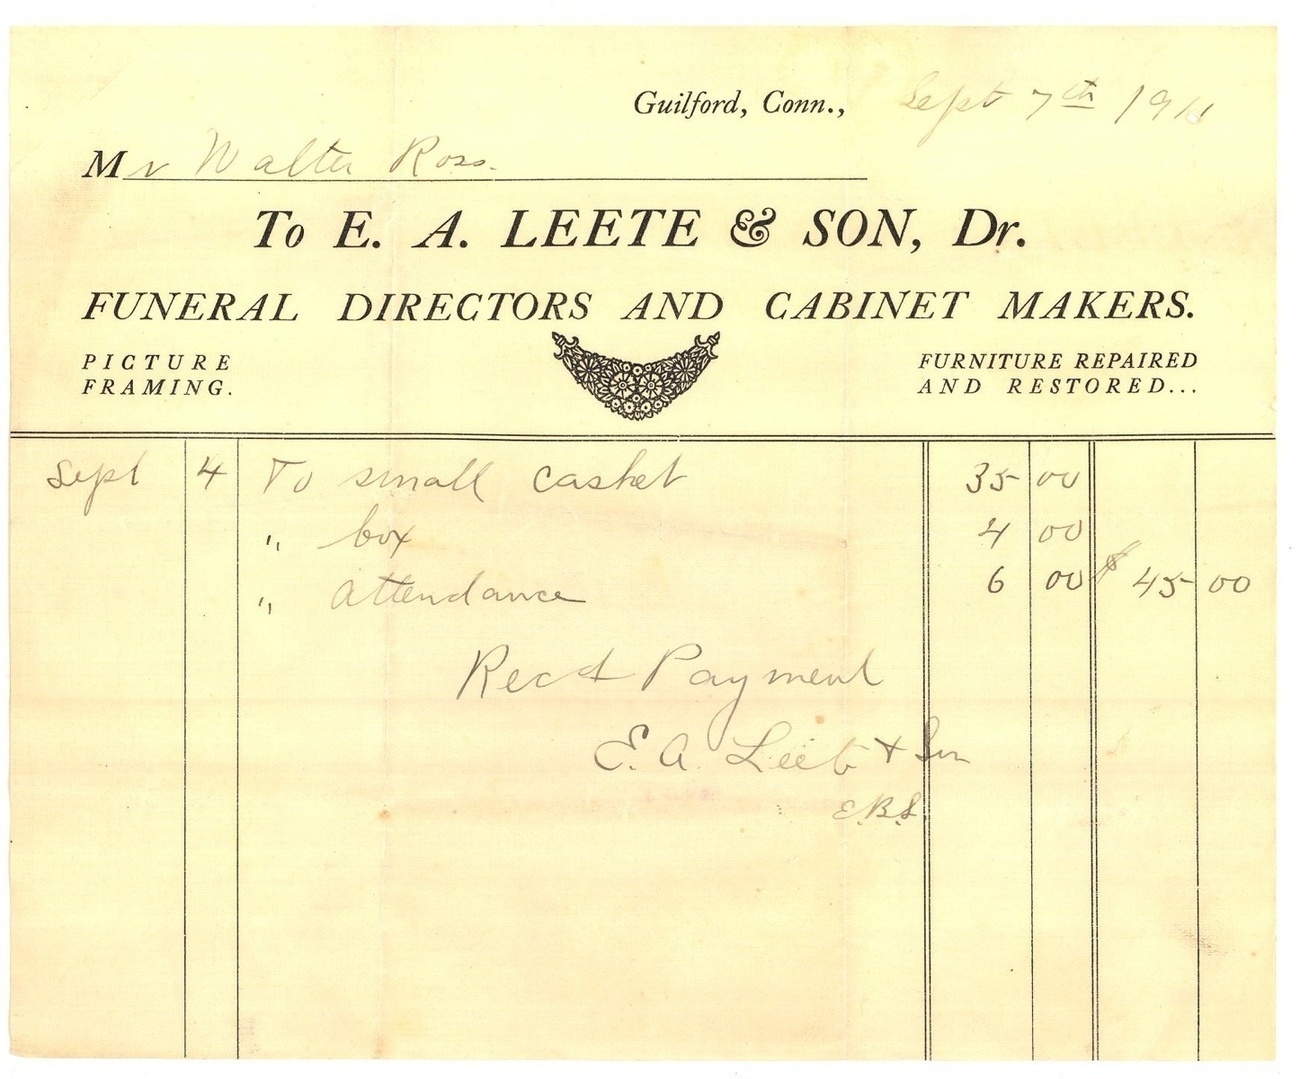 Guilford, Conn., Sept 7th 191
Mr Walter Ross.
To E. A. LEETE & SON, Dr.
FUNERAL DIRECTORS AND CABINET MAKERS.
PICTURE FRAMING.
FURNITURE REPAIRED AND RESTORED...
Sept 4 To small casket 35 00
" box 4 00
" attendance 6 00 $ 45 00
Recd Payment
E. A. Leete & Son
E.B.L.